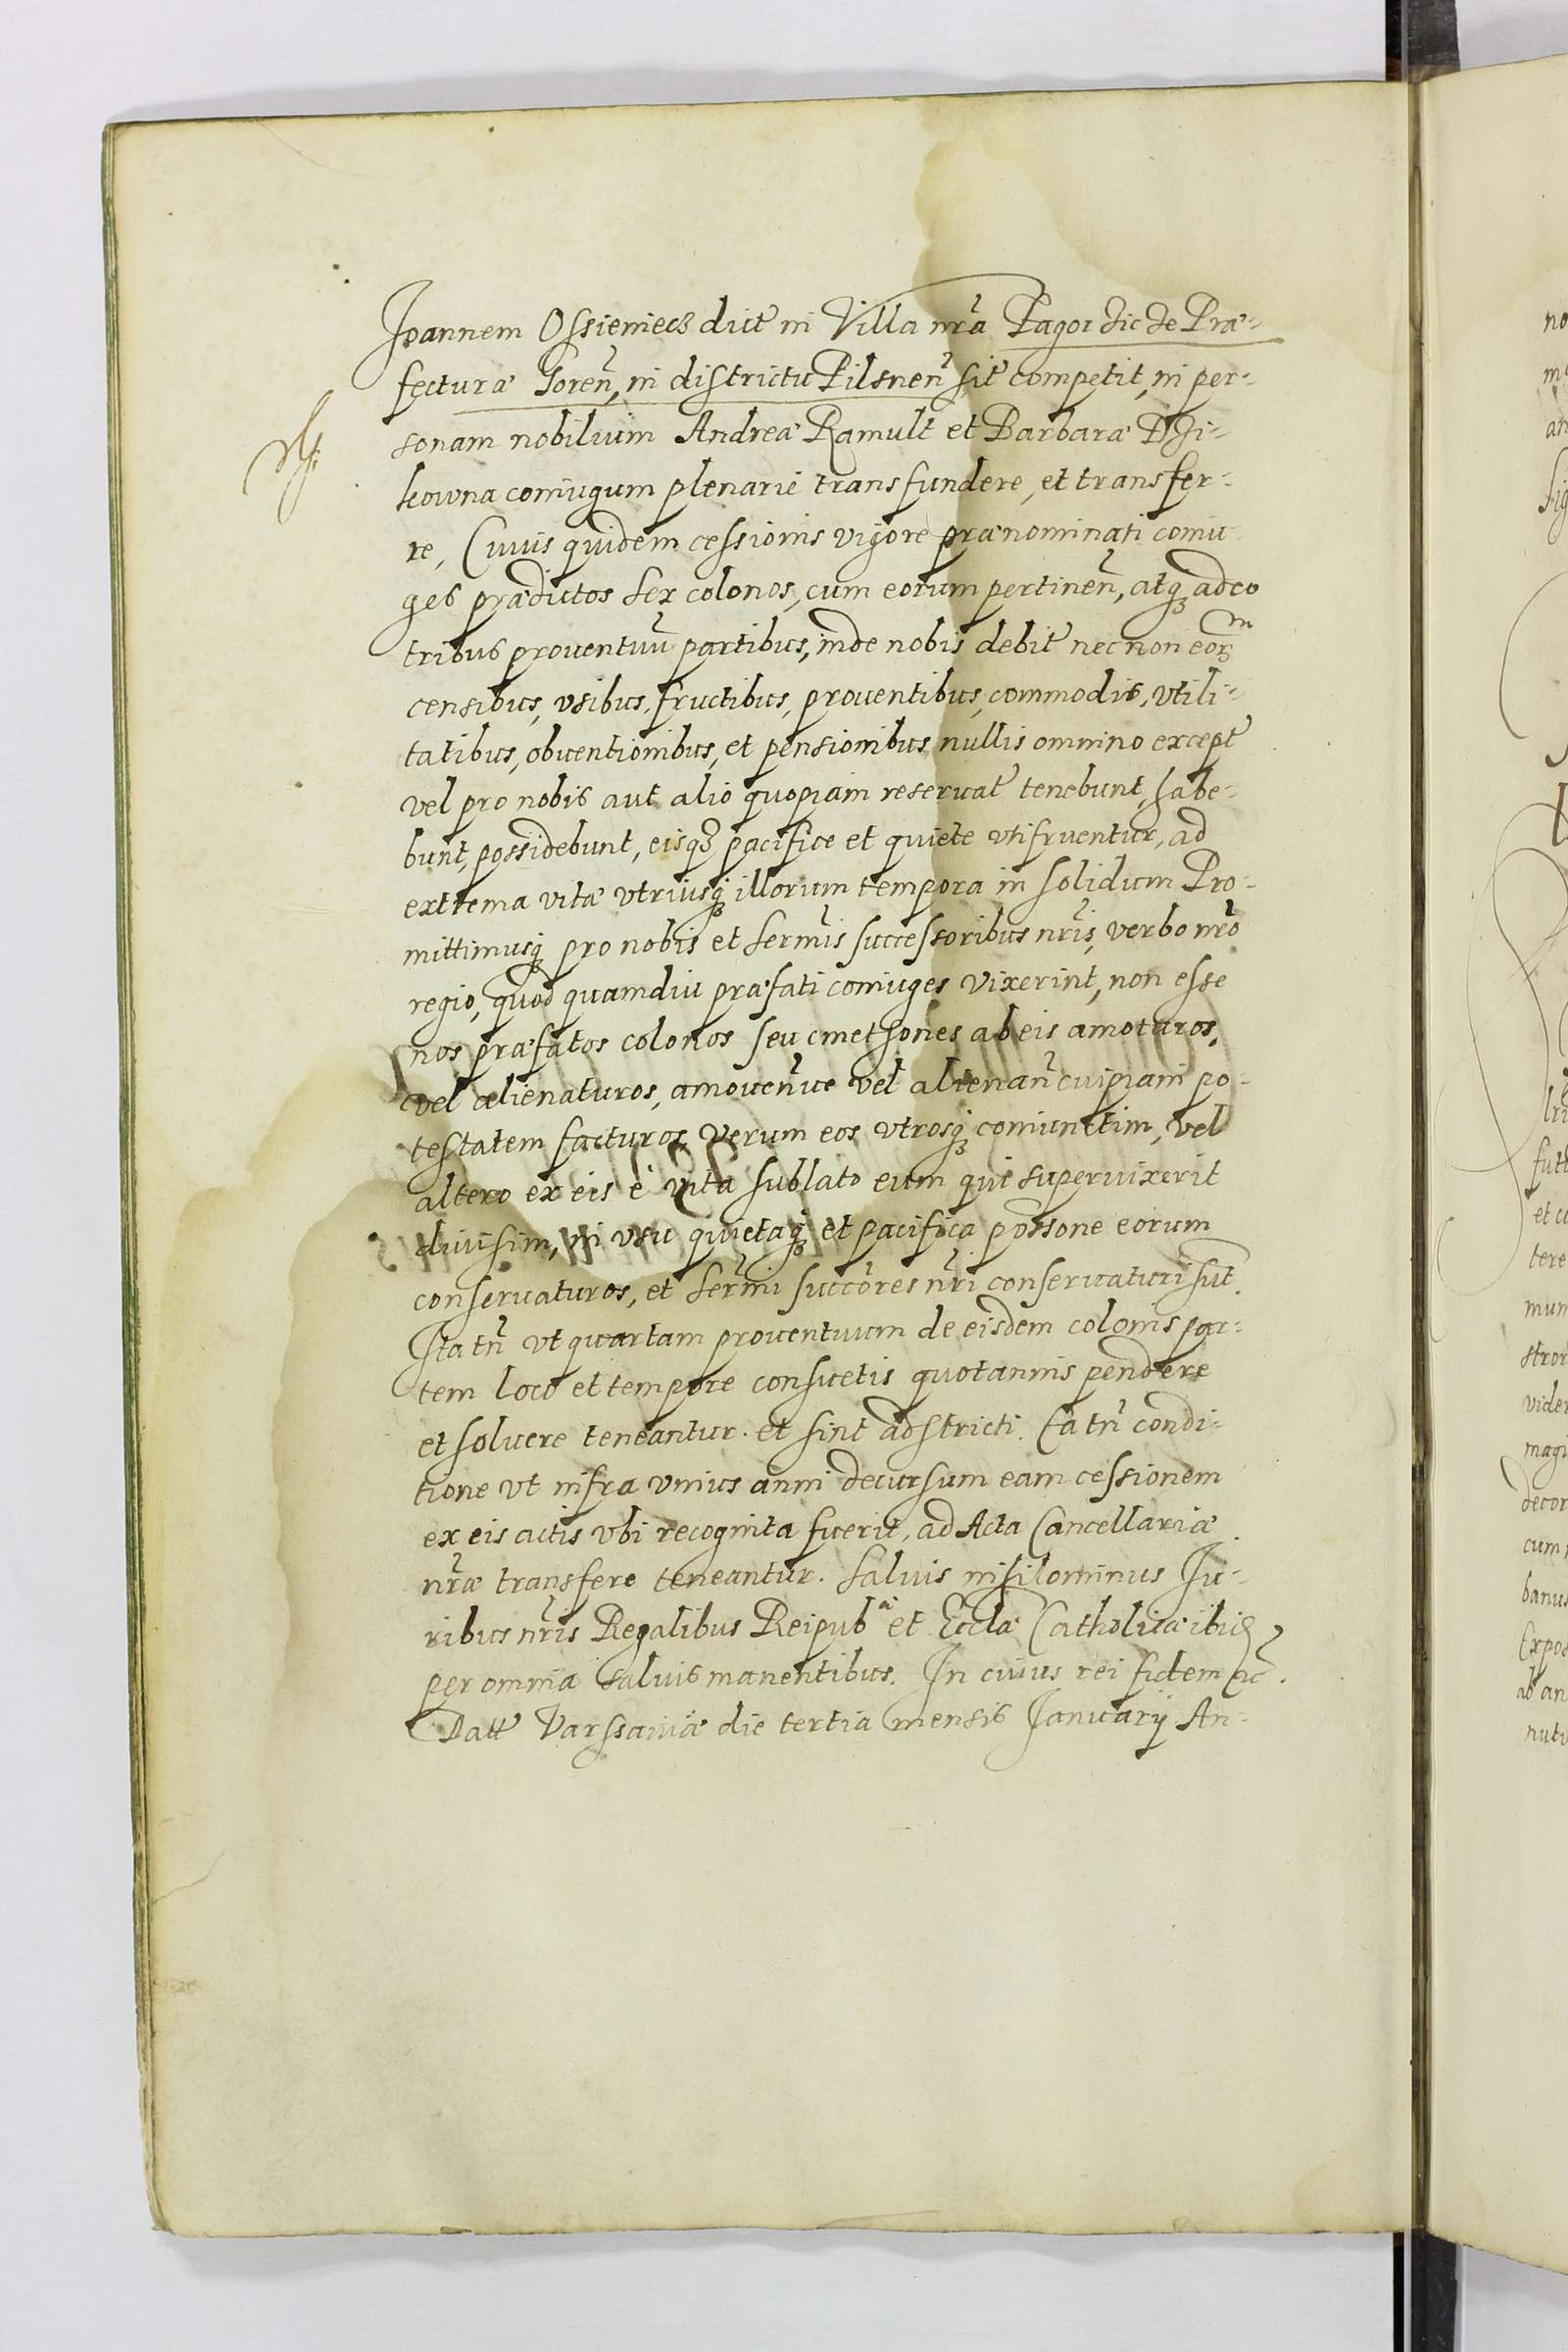 Joannem Ossieniecz dict in Villa nra Pagor dic de Præ-
fecturæ Goren, in districtu Pilsnen sit competit, in per-
sonam nobilium Andreæ Ramult et Barbaræ
kowna coniugum plenarie transfundere, et transfer-
re, Cuius quidem cessionis vigore prænominati coniu
ges prædictos sex colonos, cum eorum pertinen, atq adeo
tribus prouentuu partibus, inde nobis debit nec non eorm
censibus, vsibus, fructibus, prouentibus, commodis, vtili-
tatibus, obuentionibus, et pensionibus nullis omnino except
vel pro nobis aut alio quopiam reseruat tenebunt, habe-
bunt, possidebunt, eisq pacifice et quiete vtifruentur, ad
extrema vitæ vtriusq illorum tempora in solidum Pro-
mittimusq pro nobis et sermis successoribus nris, verbo nro
regio, quod quamdiu præfati coniuges vixerint, non esse
nos præfatos colonos seu cmethones ab eis amoturos,
vel alienaturos, amouenue vel alienan cuipiam po-
testatem facturos, verum eos vtrosq coniunctim, vel
altero ex eis e vita sublato eum qui superuixerit
diuisim, in vsu quietaq et pacifica possone eorum
conseruaturos, et sermi succores nri conseruaturi sut.
Ita tn vt quartam prouentuum de eisdem colonis par-
tem loco et tempore consuetis quotannis pendere
et soluere teneantur. et sint adstricti. Ea tn condi-
tione vt infra vnius anni decursum eam cessionem
ex eis actis vbi recognita fuerit, ad Acta Cancellariæ
nræ transfere teneantur. Saluis nihilominus Ju-
ribus nris Regalibus Reipub et Eccla Catholicæ ibid
per omnia saluis manentibus. In cuius rei fidem etc.
Datt Varssauiæ die tertia mensis Januarij An-